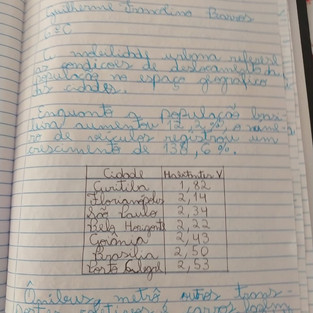 Guilherme
6ºC
A mobilidade urbana refere-se
as condições de deslocamento da
população no espaço geográfico
das cidades.
Enquanto a população brasi-
leira aumentou 12,2%, o núme-
ro de veículos registrou um
crescimento de 138,6%.
Cidade Habitantes V
Curitiba 1,82
Florianópolis 2,14
São Paulo 2,34
Belo Horizonte 2,22
Goiânia 2,43
Brasília 2,50
Porto 2,53
Ônibus, metrô, outros trans-
portes coletivos e carros